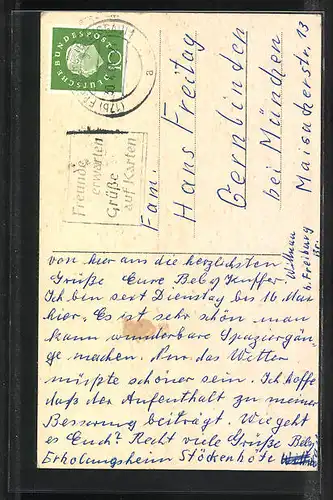 DEUTSCHE BUNDESPOST
10
(17b) FR
a
Freunde
erwarten
Grüße
auf Karten
Fam.
Hans Freitag
Gernlinden
bei München
Maisacherstr. 13
Wittnau
b. Freiburg
Br.
von hier aus die herzlichsten
Grüße Eure Beby Kuffer!
Ich bin seit Dienstag bis 16 Mai
hier. Es ist sehr schön man
kann wunderbare Spaziergän-
ge machen. Nur das Wetter
müßte schöner sein. Ich hoffe
daß der Aufenthalt zu meiner
Besserung beiträgt. Wie geht
es Euch? Recht viele Grüße Beby
Erholungsheim Stöckenhöfe